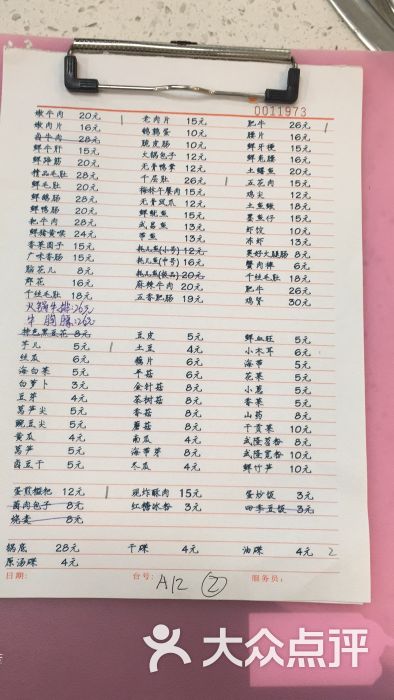 0011973
嫩牛肉 20元 老肉片 15元 肥牛 26元
嫩肉片 16元 鹌鹑蛋 10元 腰片 16元
卤牛肉 28元 脆皮肠 10元 鲜牛梗 15元
鲜牛肝 15元 火锅包子 12元 鲜毛腰 16元
鲜蹄筋 20元 无骨鸭掌 12元 土鳝鱼 20元
精品毛肚 28元 千层肚 26元 五花肉 15元
鲜毛肚 20元 梅林午餐肉 15元 鸡尖 12元
鲜鹅肠 28元 无骨凤爪 12元 土鱼鳅 18元
鲜鸭肠 20元 鲜鱿鱼 15元 墨鱼仔 15元
耙牛肉 28元 武昌鱼 13元 虾饺 10元
鲜猪黄喉 24元 带鱼 13元 冻虾 13元
香菜圆子 15元 耗儿鱼(小号) 12元 美好火腿肠 8元
广味香肠 15元 耗儿鱼(中号) 16元 蟹肉棒 6元
脑花儿 8元 耗儿鱼(极品) 20元 肥牛 26元
郡花 16元 麻辣牛肉 20元 鸡肾 30元
千丝毛肚 18元 五香肥肠 19元
火锅牛排:26元
牛胸膈:26元
特色黑豆花 8元 豆皮 5元 鲜血旺 5元
芋儿 5元 土豆 4元 小木耳 6元
丝瓜 6元 藕片 6元 海带 5元
海白菜 5元 平菇 6元 花菜 5元
白萝卜 3元 金针菇 8元 小葱 5元
豆芽 4元 茶树菇 8元 香菜 5元
莴笋尖 5元 香菇 8元 山药 8元
豌豆尖 5元 蘑菇 8元 干贡菜 10元
黄瓜 4元 南瓜 4元 武隆苕粉 10元
莴笋 5元 海带芽 8元 武隆宽粉 10元
卤豆干 5元 冬瓜 4元 鲜竹笋 10元
蛋煎糍粑 12元 现炸酥肉 15元 蛋炒饭 3元
酱肉包子 8元 红糖冰粉 3元 四季豆饭 3元
烧麦 8元
锅底 28元 干碟 4元 油碟 4元 2
原汤碟 4元
日期: 台号: A12 ② 服务员:
大众点评